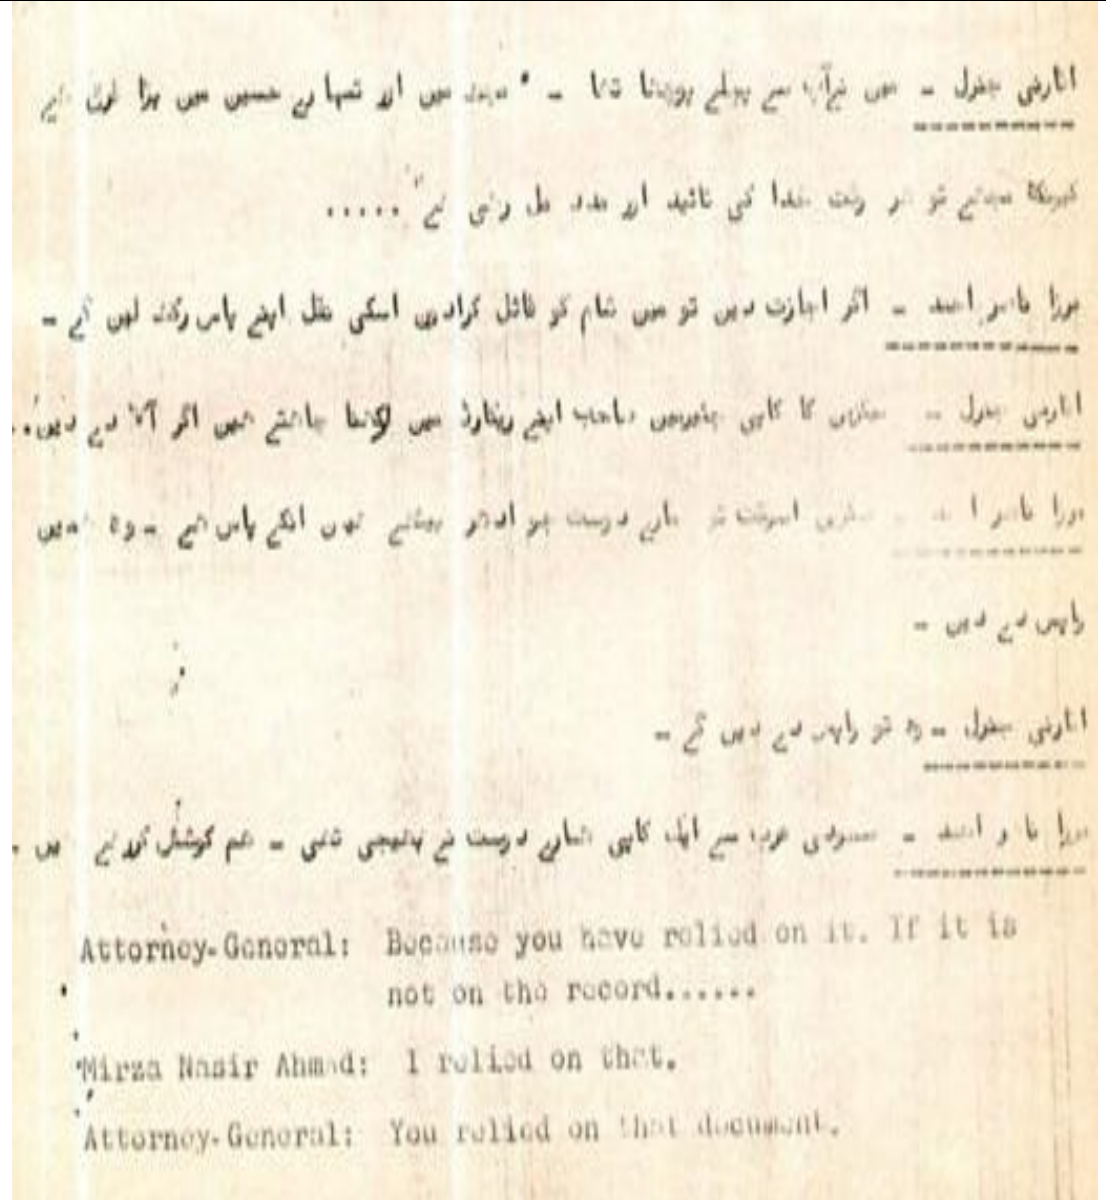 اٹارنی جنرل - میں نے آپ سے پہلے پوچھا تھا - " مجھ میں اور تمہارے حسین میں بڑا فرق ہے
کیونکہ مجھے تو ہر وقت خدا کی تائید اور مدد مل رہی ہے" .....
مرزا ناصر احمد - اگر اجازت دیں تو میں شام کو فائل کرادیں اسکی نقل اپنے پاس رکھ لیں گے -
اٹارنی جنرل - کا کاپی چیئرمین صاحب اپنے ریکارڈ میں رکھنا چاہتے ہیں اگر آپ دے دیں..
مرزا ناصر احمد - اسوقت تو ہمارے دوست جو ادھر بیٹھے ہیں انکے پاس ہے - وہ ہمیں
واپس دے دیں -
اٹارنی جنرل - وہ تو واپس دے دیں گے -
مرزا ناصر احمد - سعودی عرب سے ایک کاپی ہمارے دوست نے بھیجی تھی - ہم کوشش کرتے ہیں -
Attorney-General: Because you have relied on it. If it is
not on the record......
Mirza Nasir Ahmad: I relied on that.
Attorney-General: You relied on that document.